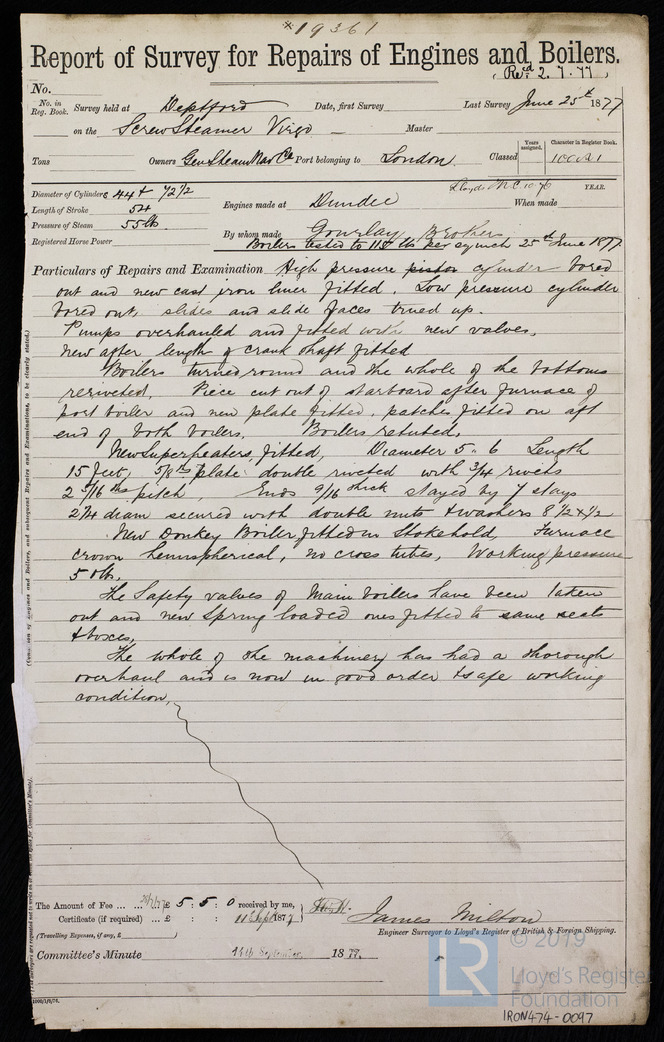 *19361
Report of Survey for Repairs of Engines and Boilers.
Recd 2.7.77
No.
No. in Reg. Book. Survey held at Deptford Date, first Survey Last Survey June 25th 1877
on the Screw Steamer Virgo — Master
Tons Owners Gen Steam Nav Co Port belonging to London Classed Years assigned. Character in Register Book. 100A1
Lloyds M.C. 10.76 YEAR.
Diameter of Cylinders 44 + 72 1/2 Engines made at Dundee When made
Length of Stroke 54
Pressure of Steam 55 lb. By whom made Gourlay Brothers
Registered Horse Power Boilers tested to 115 lbs per sq inch 25th June 1877
Particulars of Repairs and Examination High pressure piston cylinder bored
out and new cast iron liner fitted. Low pressure cylinder
bored out, slides and slide faces trued up.
Pumps overhauled and fitted with new valves,
new after length of crank shaft fitted
Boilers turned round and the whole of the bottoms
reriveted, Piece cut out of starboard after furnace of
port boiler and new plate fitted, patches fitted on aft
end of both boilers. Boilers retubed.
New superheaters, fitted, Diameter 5.. 6 Length
15 feet, 5/8ths plate double riveted with 3/4 rivets
2 3/16 ths pitch, Ends 9/16 thick stayed by 7 stays
2 1/4 diam secured with double nuts & washers 8 1/2 x 1/2
New Donkey Boiler, fitted in Stokehold, Furnace
crown hemispherical, no cross tubes, Working pressure
50 lb.
The Safety valves of Main boilers have been taken
out and new Spring loaded ones fitted to same seats
& boxes,
The whole of the machinery has had a thorough
overhaul and is now in good order & safe working
condition,
The Amount of Fee ... ... £ 5 : 5 : 0 received by me,
Certificate (if required) ... £ : : 11 Sept 1877
James Milton
(Travelling Expenses, if any, £ )
Engineer Surveyor to Lloyd's Register of British & Foreign Shipping.
Committee's Minute 14th September 1877.
© 2019
LR Lloyd's Register
Foundation
IRON474-0097